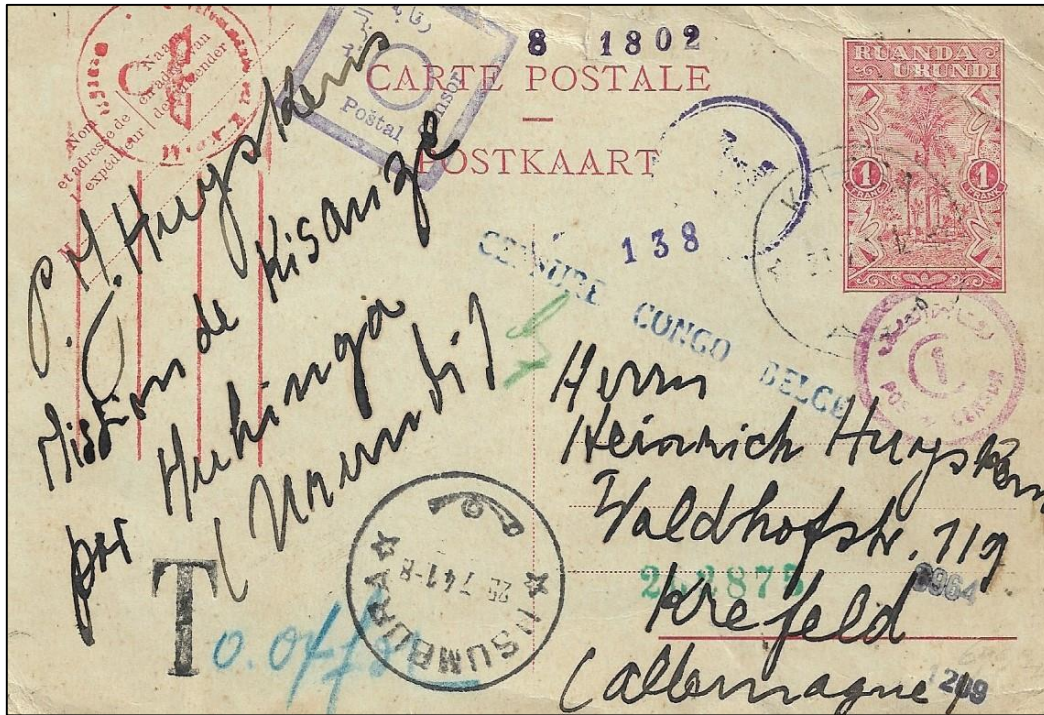 8 1802
CARTE POSTALE
POSTKAART
RUANDA
URUNDI
1 FRANC 1 FRANC
Nom
et adresse de
l'expéditeur
Naam
en adres van
de afzender
Postal Censor
138
CENSURE CONGO BELGE
P. M. Huyskens
Mission de Kisanze
par Muhinga
(Urundi)
Herrn
Heinrich Huyskens
Waldhofstr. 119
Krefeld
(allemagne)
T
USUMBURA
25-7 41-8
242875
3964
1209